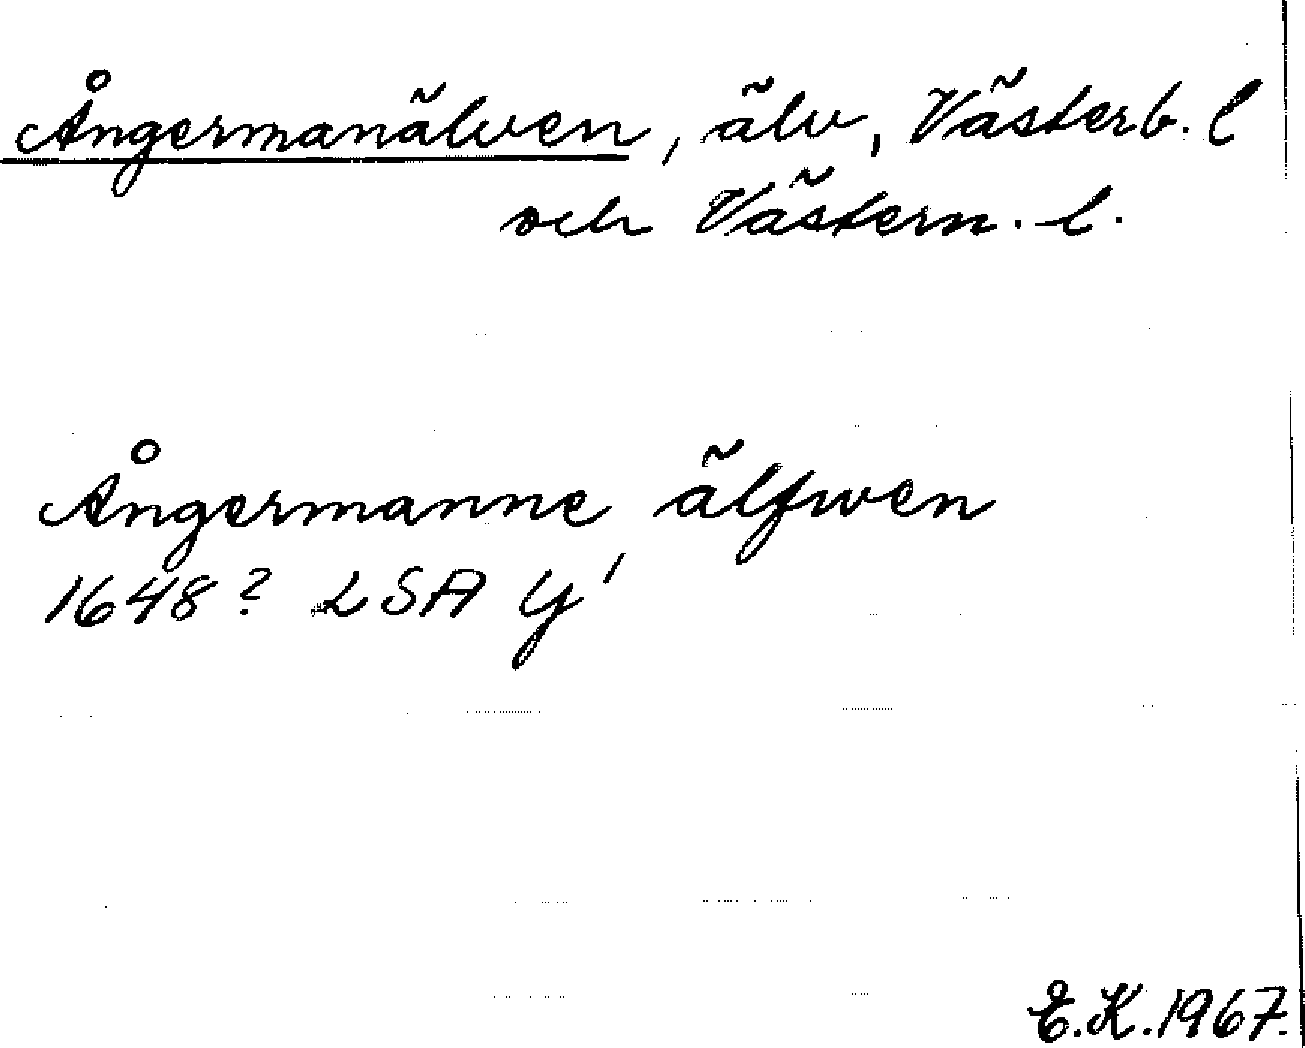 Ångermanälven, älv, Västerb. l
och Västern. l.
Ångermanne älfwen
1648? LSA Y'
E.K. 1967.